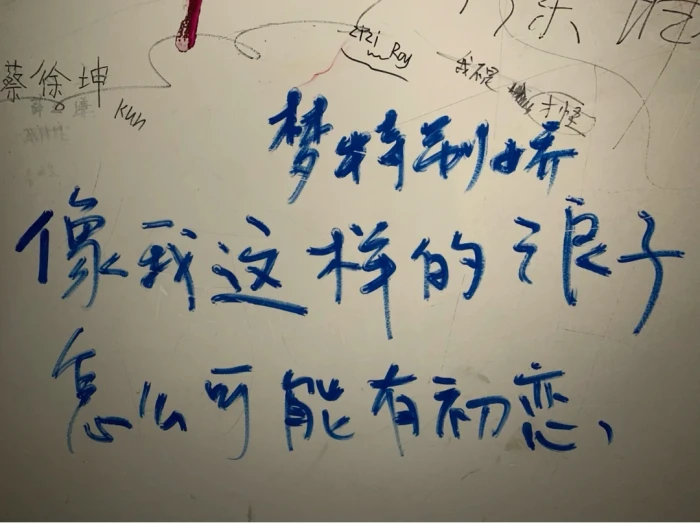 蔡徐坤
Kun
Roy
我不是
才怪
梦特别娇
像我这样的浪子
怎么可能有初恋、